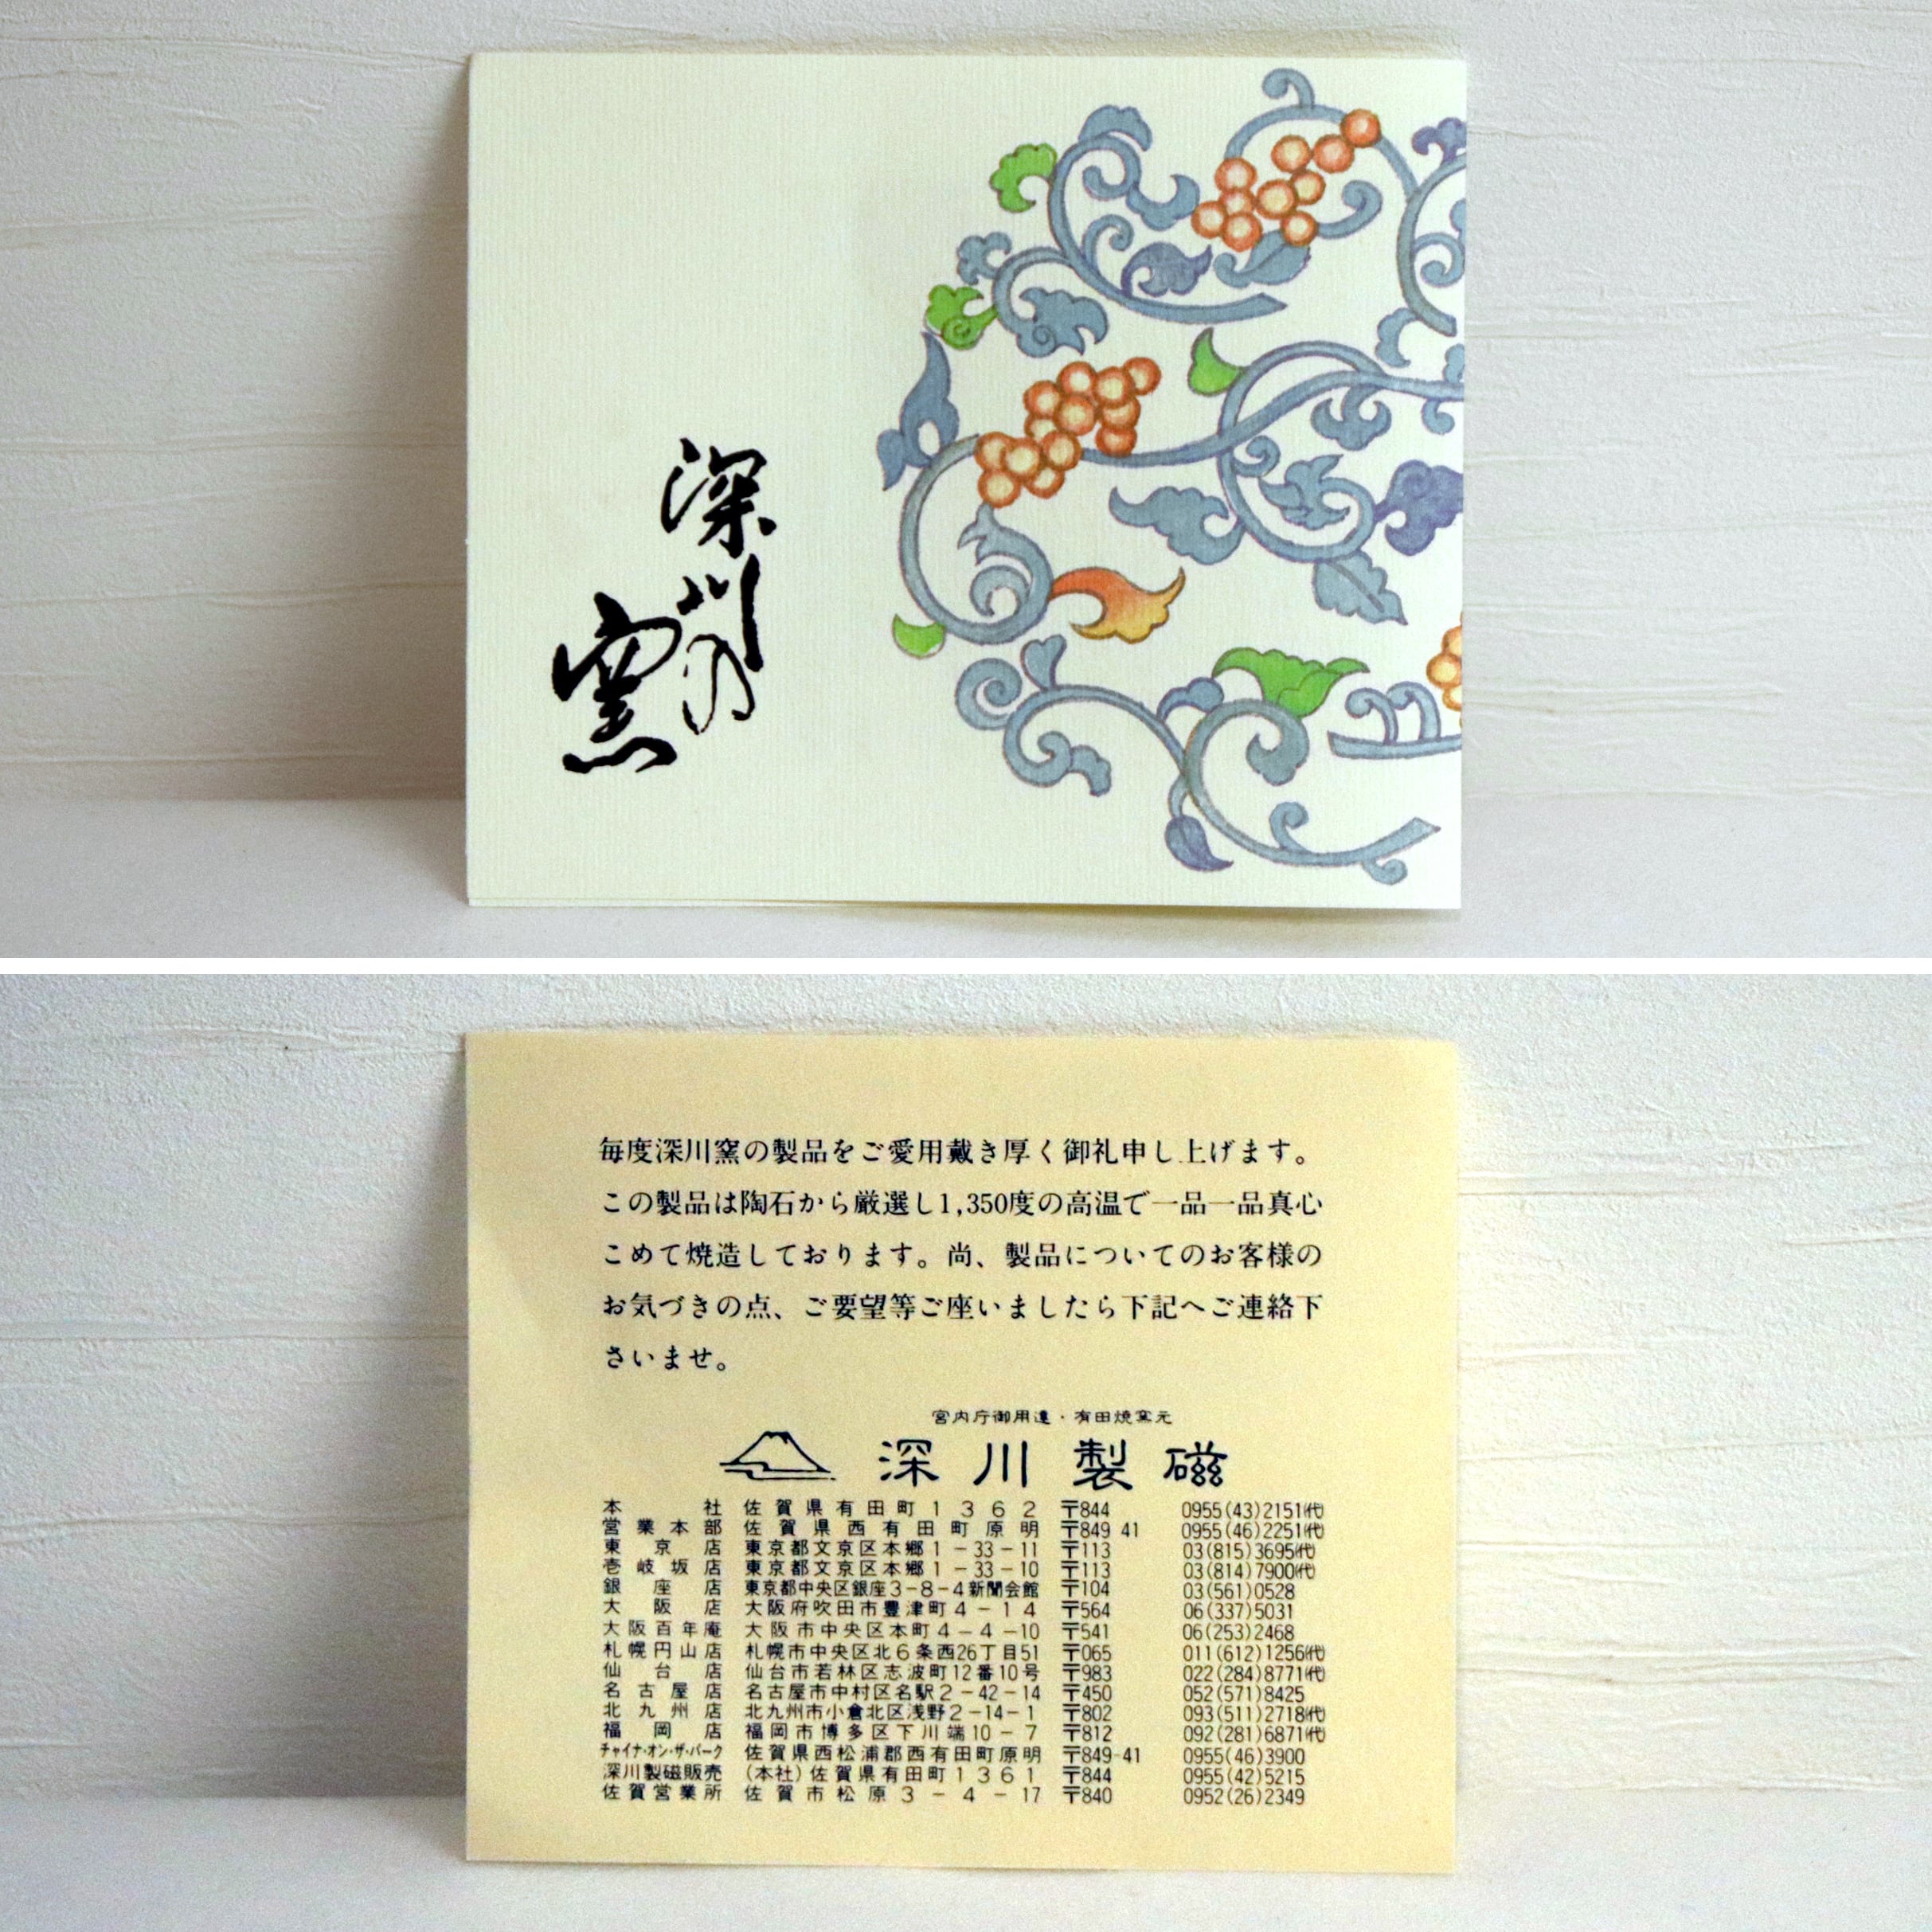 深川の
窯
毎度深川窯の製品をご愛用戴き厚く御礼申し上げます。
この製品は陶石から厳選し1,350度の高温で一品一品真心
こめて焼造しております。尚、製品についてのお客様の
お気づきの点、ご要望等ご座いましたら下記へご連絡下
さいませ。
宮内庁御用達・有田焼窯元
深川製磁
本社 佐賀県有田町1362 〒844 0955(43)2151㈹
営業本部 佐賀県西有田町原明 〒849-41 0955(46)2251㈹
東京店 東京都文京区本郷1-33-11 〒113 03(815)3695㈹
壱岐坂店 東京都文京区本郷1-33-10 〒113 03(814)7900㈹
銀座店 東京都中央区銀座3-8-4新聞会館 〒104 03(561)0528
大阪店 大阪府吹田市豊津町4-14 〒564 06(337)5031
大阪百年庵 大阪市中央区本町4-4-10 〒541 06(253)2468
札幌円山店 札幌市中央区北6条西26丁目51 〒065 011(612)1256㈹
仙台店 仙台市若林区志波町12番10号 〒983 022(284)8771㈹
名古屋店 名古屋市中村区名駅2-42-14 〒450 052(571)8425
北九州店 北九州市小倉北区浅野2-14-1 〒802 093(511)2718㈹
福岡店 福岡市博多区下川端10-7 〒812 092(281)6871㈹
チャイナ・オン・ザ・パーク 佐賀県西松浦郡西有田町原明 〒849-41 0955(46)3900
深川製磁販売 (本社)佐賀県有田町1361 〒844 0955(42)5215
佐賀営業所 佐賀市松原3-4-17 〒840 0952(26)2349